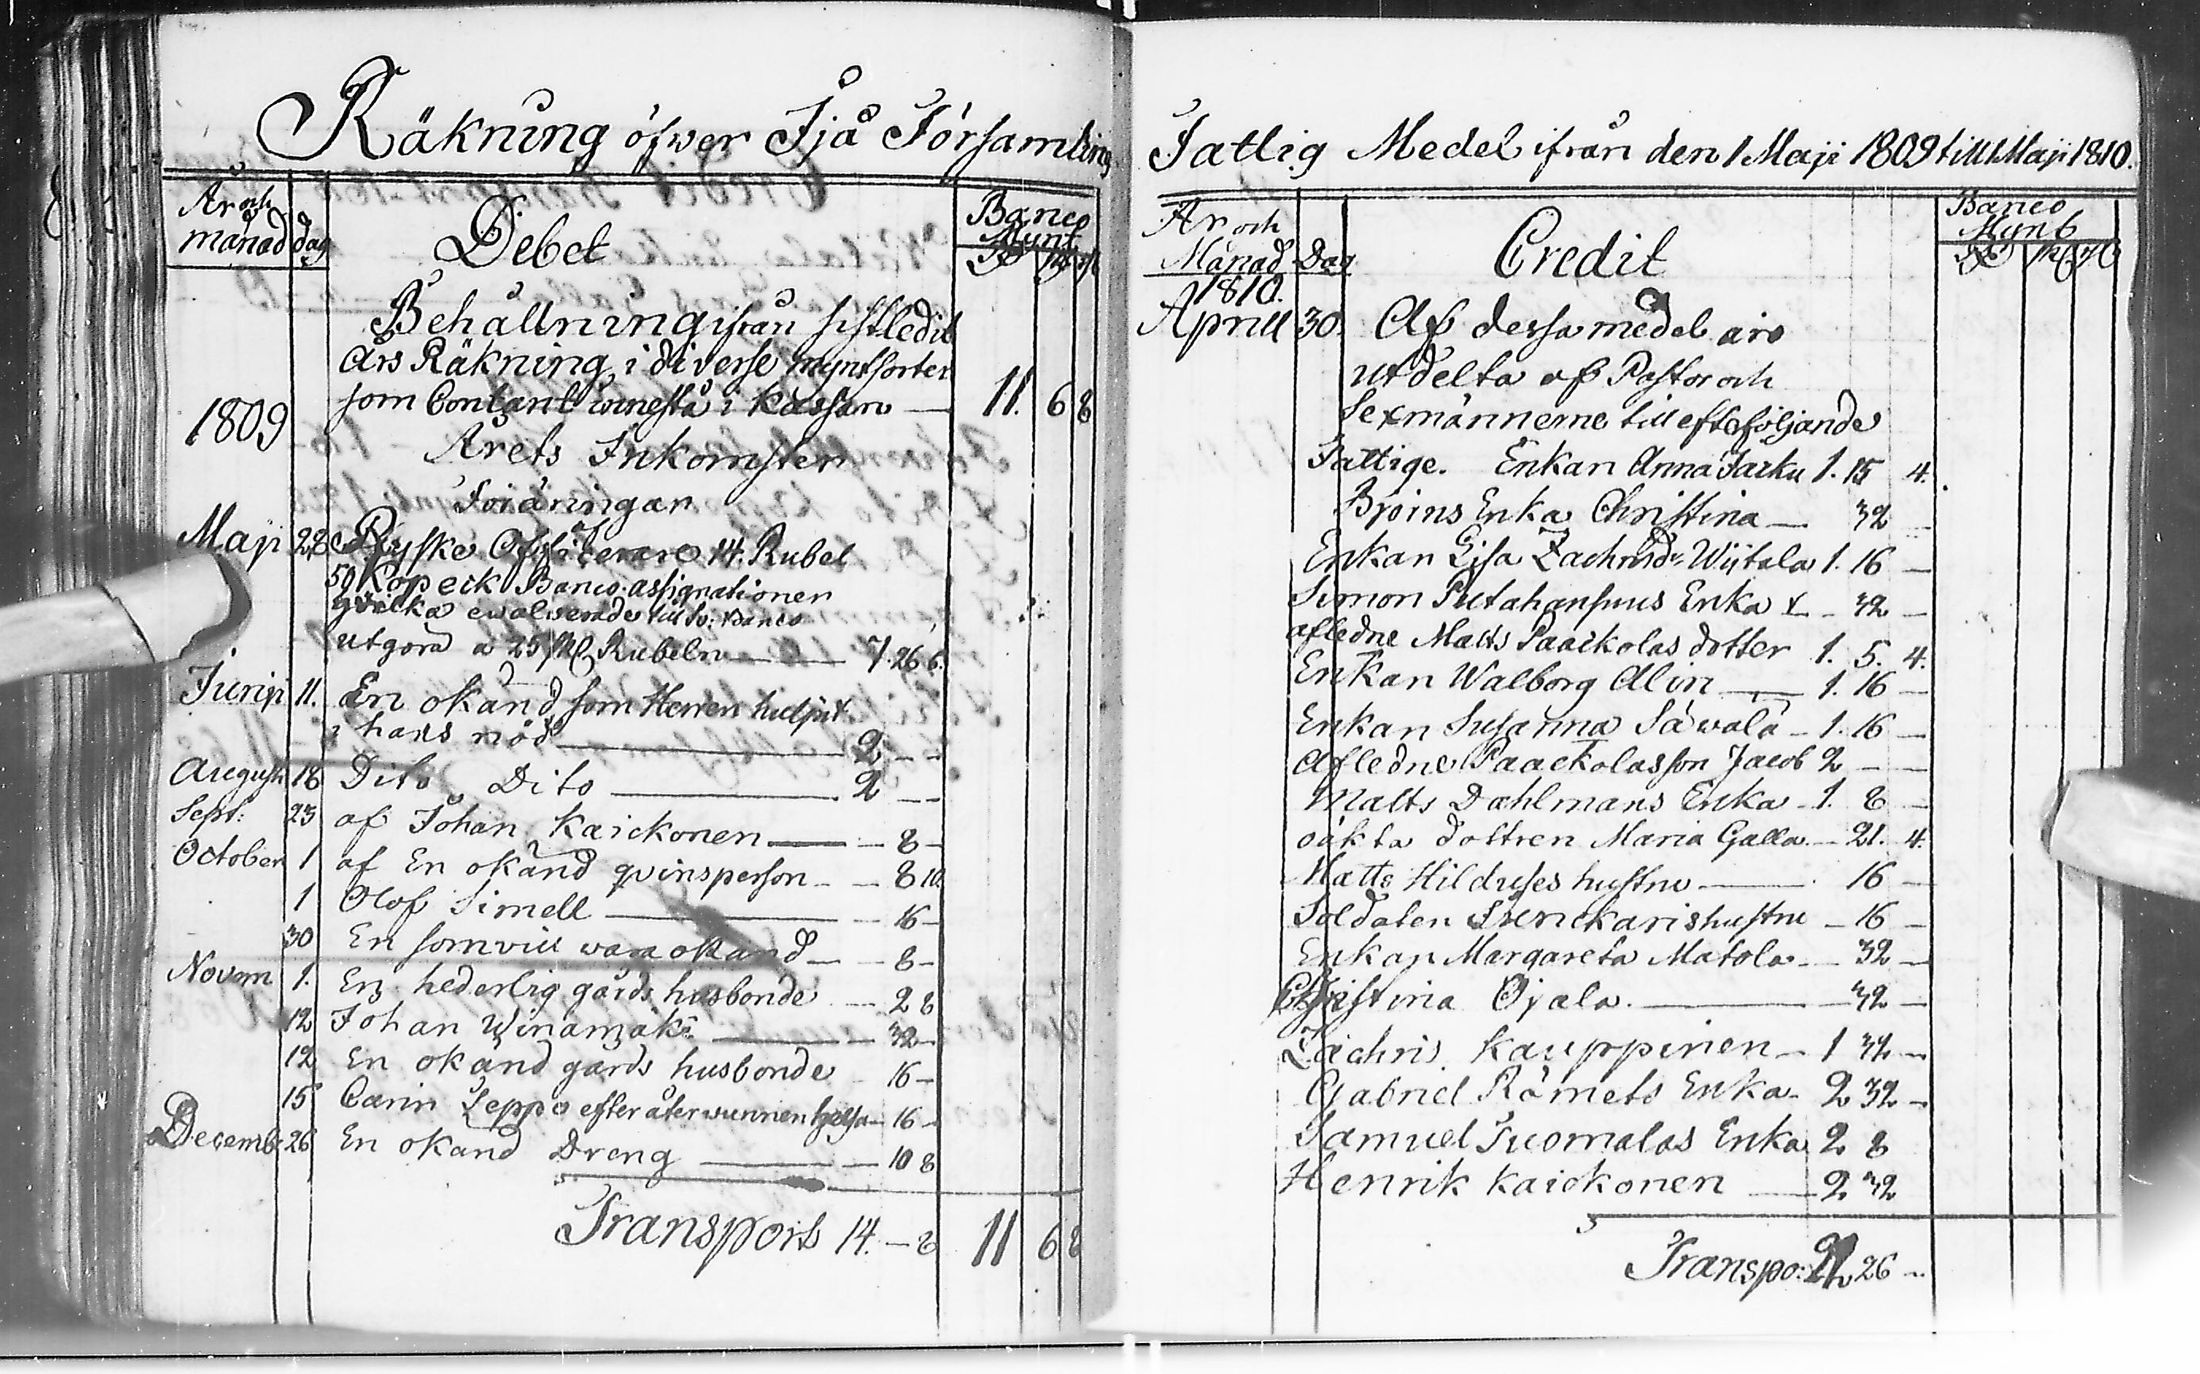 Räkning öfwer Ijå Församling
År och
månad dag
Debet
Banco
Mynt
Behållning ifrån sistledit
års Räkning i diverse myntsorter
som Contant innestå i Kassan — 11. 6 8
1809
Årets Inkomster
Föräningar
Maji 28 Ryske Officerare 14. Rubel
50 Kopeck Banco assignationer
hvilka ewalverade till Sv: Banco
utgöra a 25 sk Rubeln — 7 26 6.
Junii 11. En okänd som Herren hulpit
i hans nöd — 2 — —
Augusti 18 Dito Dito — 2 — —
Sept: 23 af Johan Kaickonen — 8 —
October 1 af En okänd qvinsperson — 8 10.
1 Olof Simell — 16 —
30 En som vill wara okänd — 8 —
Novem 1. En hederlig gårds husbonde — 2 8
12 Johan Winamäki — 32 —
12 En okänd gårds husbonde 16 —
15 Carin Seppo efter återwunnen helsa — 16 —
Decemb 26 En okänd Dreng — 10 8
Transport 14. — 8 11 6 8
Fattig Medel ifrån den 1 Maji 1809 till 1 Maji 1810.
År och
Månad Dag
Credit
Banco
Mynt
1810.
Aprill 30. Af dessa medel äro
utdelta af Pastor och
Sexmännerne till efterföljande
Fattige. Enkan Anna Jarku 1. 15 4.
Björns Enka Christina — 32 —
Enkan Lisa Zachrisd:r Wijtala 1. 16 —
Simon Putahansuus Enka — 32 —
afledne Matts Paackolas dotter 1. 5. 4.
Enkan Walborg Alin — 1. 16 —
Enkan Susanna Säwalä — 1. 16 —
Afledne Paackolas son Jacob 2 — —
Matts Dahlmans Enka — 1. 8 —
oäkta dottren Maria Galla — 21. 4.
Matts Hilduses hustru — 16 —
Soldaten hustru — 16 —
Enkan Margareta Matola — 32 —
Christina Ojala. — 32 —
Zachris Kauppinen — 1 32 —
Gabriel Rämets Enka — 2 32 —
Samuel Tuomalas Enka 2 8
Henrik Kaickonen — 2 32
Transpo: 26 —